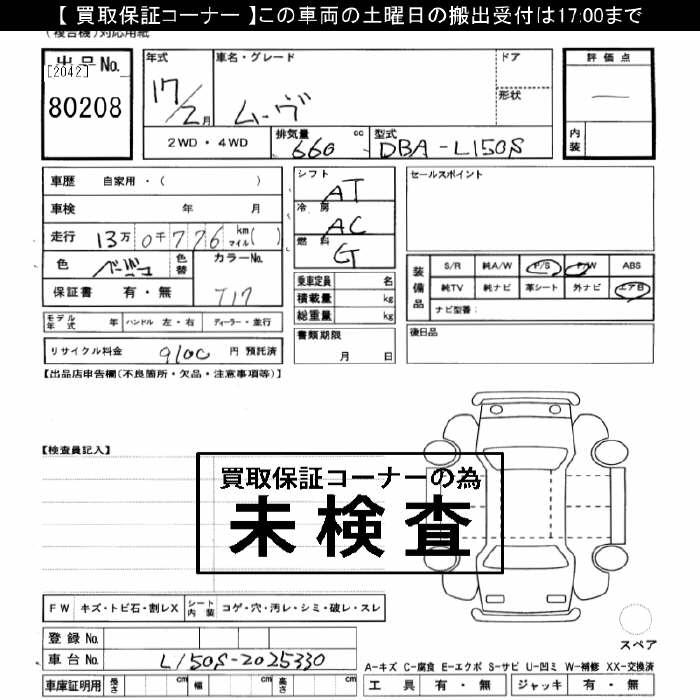 【 買取保証コーナー 】この車両の土曜日の搬出受付は17:00まで
(複合機)対応用紙
出品No.
[2042]
80208
年式
17/2月
車名・グレード
ムーヴ
ドア
形状
評価点
—
内装
2WD・4WD
排気量 660 cc
型式 DBA-L150S
車歴 自家用・( )
車検 年 月
走行 13万0千776 km マイル( )
色 ベージュ
色替
カラーNo.
T17
保証書 有・無
モデル年式 年
ハンドル 左・右
ディーラー・並行
リサイクル料金 9100 円 預託済
シフト AT
冷房 AC
燃料 G
乗車定員 名
積載量 kg
総重量 kg
書類期限
月 日
セールスポイント
装備品
S/R 純A/W P/S P/W ABS
純TV 純ナビ 革シート 外ナビ エアB
ナビ型番:
後日品
【出品店申告欄(不良箇所・欠品・注意事項等)】
【検査員記入】
買取保証コーナーの為
未検査
FW キズ・トビ石・割レX
シート内装 コゲ・穴・汚レ・シミ・破レ・スレ
登録No.
車台No. L150S-2025330
車庫証明用 長さ cm 幅 cm 高さ cm
スペア
A-キズ C-腐食 E-エクボ S-サビ U-凹ミ W-補修 XX-交換済
工具 有・無 ジャッキ 有・無